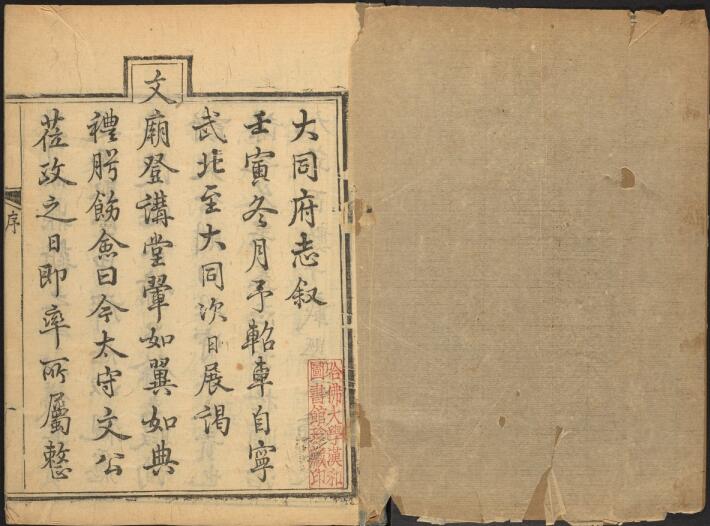 大同府志叙
壬寅冬月予軺車自寧
武北至大同次日展謁
文廟登講堂翬如翼如典
禮肹飭僉曰今太守文公
蒞政之日即率所屬整
序
一
哈佛大學漢和
圖書館珍藏印